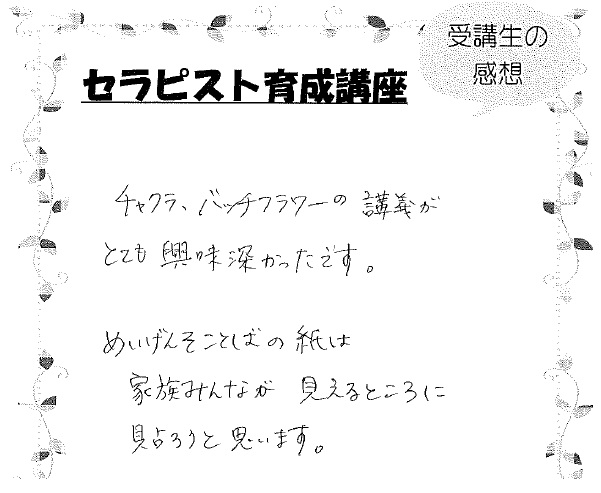 受講生の
感想
セラピスト育成講座
チャクラ、バッチフラワーの講義が
とても興味深かったです。
めいげんそことばの紙は
家族みんなが見えるところに
貼ろうと思います。